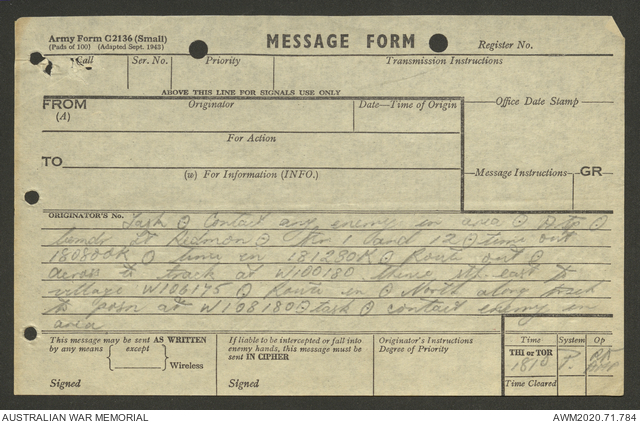 Army Form C2136 (Small)
(Pads of 100) (Adapted Sept. 1943)
MESSAGE FORM
Register No.
Call
Ser. No.
Priority
Transmission Instructions
ABOVE THIS LINE FOR SIGNALS USE ONLY
FROM
(A)
Originator
Date—Time of Origin
Office Date Stamp
For Action
TO
(w) For Information (INFO.)
Message Instructions
GR
ORIGINATOR'S No.
Task ⊙ Contact any enemy in area ⊙ ⊙
Lt Redmon ⊙ 1 and 12 ⊙ time out
180800K ⊙ time in 181230K ⊙ Route out ⊙
across to track at W100180 thence east to
village W106175 ⊙ Route in ⊙ North along track
to posn at W108180 ⊙ task ⊙ contact enemy in
area
This message may be sent AS WRITTEN
by any means
except
Wireless
Signed
If liable to be intercepted or fall into
enemy hands, this message must be
sent IN CIPHER
Signed
Originator's Instructions
Degree of Priority
Time
System
Op
THI or TOR
1810
P.
Time Cleared
AUSTRALIAN WAR MEMORIAL
AWM2020.71.784